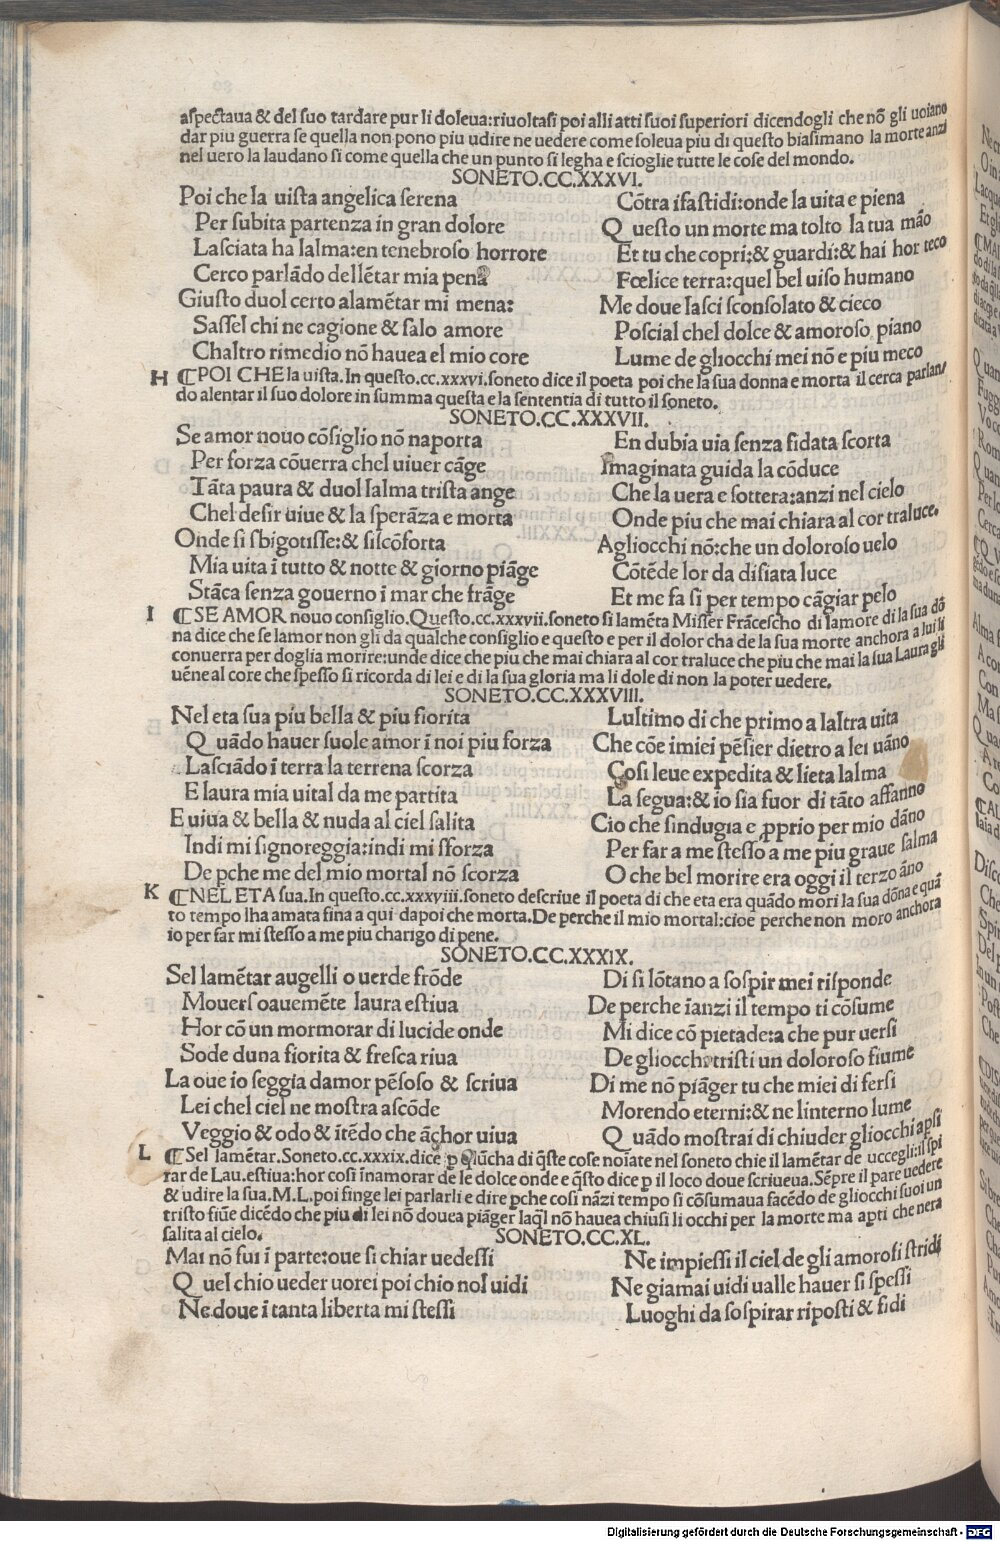 aſpectaua & del ſuo tardare pur li doleua:riuoltaſi poi alli atti ſuoi ſuperiori dicendogli che nõ gli uoiano
dar piu guerra ſe quella non pono piu udire ne uedere come ſoleua piu di queſto biaſimano la morte anzi
nel uero la laudano ſi come quella che un punto ſi legha e ſcioglie tutte le coſe del mondo.
SONETO.CC.XXXVI.
Poi che la uiſta angelica ſerena
Per ſubita partenza in gran dolore
Laſciata ha lalma:en tenebroſo horrore
Cerco parlãdo dellẽtar mia pena
Giuſto duol certo alamẽtar mi mena:
Saſſel chi ne cagione & ſalo amore
Chaltro rimedio nõ hauea el mio core
Cõtra ifaſtidi:onde la uita e piena
Queſto un morte ma tolto la tua mão
Et tu che copri:& guardi:& hai hor teco
Fœlice terra:quel bel uiſo humano
Me doue laſci ſconſolato & cieco
Poſcial chel dolce & amoroſo, piano
Lume de gliocchi mei nõ e piu meco
H ¶POI CHE la uiſta. In queſto.cc.xxxvi.ſoneto dice il poeta poi che la ſua donna e morta il cerca parlan/
do alentar il ſuo dolore in ſumma queſta e la ſententia di tutto il ſoneto.
SONETO.CC.XXXVII.
Se amor nouo cõſiglio nõ naporta
Per forza cõuerra chel uiuer cãge
Tãta paura & duol lalma triſta ange
Chel deſir uiue & la ſperãza e morta
Onde ſi ſbigotiſſe:& ſiſcõforta
Mia uita ĩ tutto & notte & giorno piãge
Stãca ſenza gouerno ĩ mar che frãge
En dubia uia ſenza fidata ſcorta
Imaginata guida la cõduce
Che la uera e ſottera:anzi nel cielo
Onde piu che mai chiara al cor traluce.
Agliocchi nõ:che un doloroſo uelo
Cõtẽde lor da diſiata luce
Et me fa ſi per tempo cãgiar pelo
I ¶SE AMOR nouo conſiglio.Queſto.cc.xxxvii.ſoneto ſi lamẽta Miſſer Frãceſcho di lamore di la ſua dõ
na dice che ſe lamor non gli da qualche conſiglio e queſto e per il dolor cha de la ſua morte anchora a lui li
conuerra per doglia morire:unde dice che piu che mai chiara al cor traluce che piu che mai la ſua Laura gli
uẽne al core che ſpeſſo ſi ricorda di lei e di la ſua gloria ma li dole di non la poter uedere.
SONETO.CC.XXXVIII.
Nel eta ſua piu bella & piu fiorita
Quãdo hauer ſuole amor ĩ noi piu forza
Laſciãdo ĩ terra la terrena ſcorza
E laura mia uital da me partita
E uiua & bella & nuda al ciel ſalita
Indi mi ſignoreggia:indi mi ſforza
De ꝑche me del mio mortal nõ ſcorza
Lultimo di che primo a laltra uita
Che cõe imiei pẽſier dietro a lei uãno
Coſi leue expedita & lieta lalma
La ſegua:& io ſia fuor di tãto affanno
Cio che ſindugia e ꝓprio per mio dãno
Per far a me ſteſſo a me piu graue ſalma
O che bel morire era oggi il terzo ãno
K ¶NEL ETA ſua.In queſto.cc.xxxviii.ſoneto deſcriue il poeta di che eta era quãdo mori la ſua dõna e quã
to tempo lha amata fina a qui da poi che morta.De perche il mio mortal:cioe perche non moro anchora
io per far mi ſteſſo a me piu charigo di pene.
SONETO.CC.XXXIX.
Sel lamẽtar augelli o uerde frõde
Mouer ſoauemẽte laura eſtiua
Hor cõ un mormorar di lucide onde
Sode duna fiorita & freſca riua
La oue io ſeggia damor pẽſoſo & ſcriua
Lei chel ciel ne moſtra aſcõde
Veggio & odo & ĩtẽdo che ãchor uiua
Di ſi lõtano a ſoſpir mei riſponde
De perche ĩanzi il tempo ti cõſume
Mi dice cõ pietade:a che pur uerſi
De gliocchi triſti un doloroſo fiume
Di me nõ piãger tu che miei di ferſi
Morendo eterni:& ne linterno lume
Quãdo moſtrai di chiuder gliocchi apſi
L ¶Sel lamẽtar.Soneto.cc.xxxix.dice ꝑ qlũcha di q̃ſte coſe noĩate nel ſoneto chie il lamẽtar de uccegli:il ſpi
rar de Lau.eſtiua:hor coſi ĩnamorar de le dolce onde e q̃ſto dice ꝑ il loco doue ſcriueua.Sẽpre il pare uedere
& udire la ſua.M.L.poi finge lei parlarli e dire ꝑche coſi nãzi tempo ſi cõſumaua facẽdo de gliocchi ſuoi un
triſto fiũe dicẽdo che piu di lei nõ douea piãger laq̃l nõ hauea chiuſi li occhi per la morte ma apti che nera
ſalita al cielo.
SONETO.CC.XL.
Mai nõ fui ĩ parte:oue ſi chiar uedeſſi
Quel chio ueder uorei poi chio nol uidi
Ne doue ĩ tanta liberta mi ſteſſi
Ne impieſſi il ciel de gli amoroſi ſtridi
Ne giamai uidi ualle hauer ſi ſpeſſi
Luoghi da ſoſpirar ripoſti & fidi
Digitalisierung gefördert durch die Deutsche Forschungsgemeinschaft - DFG